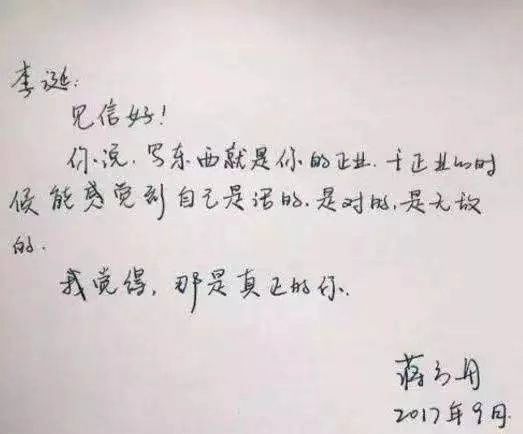 李诞:
见信好!
你说,写东西就是你的正业.干正业的时
候能感觉到自己是活的.是对的.是无敌
的.
我觉得,那是真正的你.
蒋方舟
2017年9月